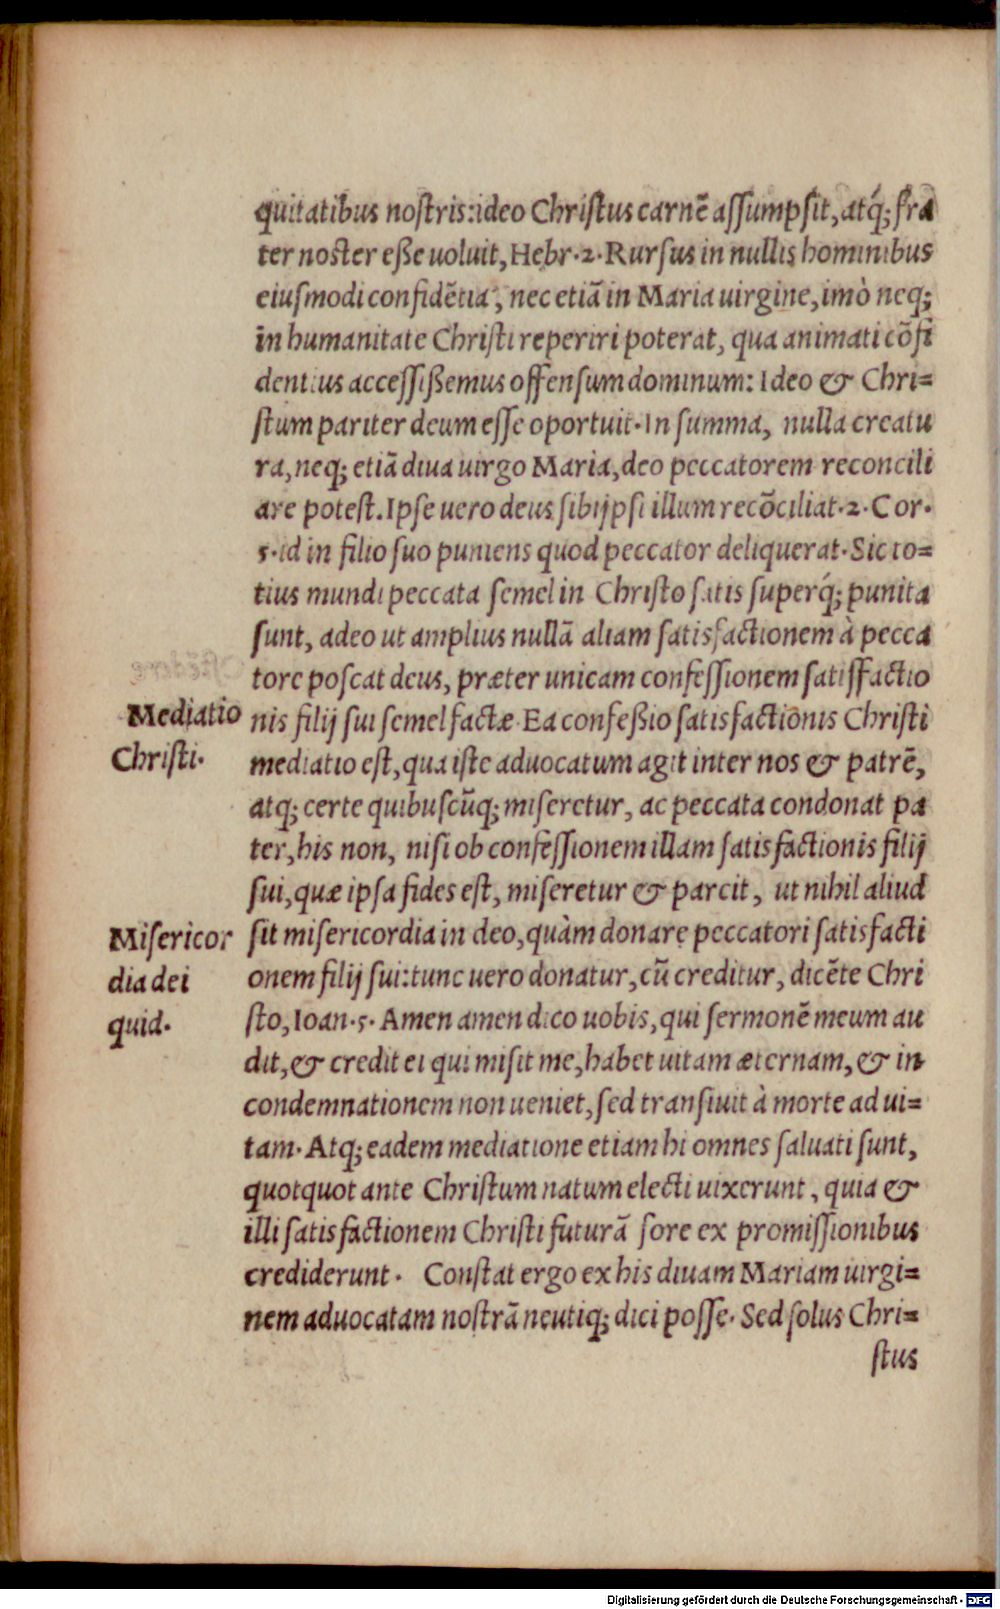 quitatibus nostris: ideo Christus carnē assumpsit, atq́; fra
ter noster eße uoluit, Hebr. 2. Rursus in nullis hominibus
eiusmodi confidētia, nec etiā in Maria uirgine, imò neq;
in humanitate Christi reperiri poterat, qua animati cōfi
dentius accessißemus offensum dominum: Ideo & Chri=
stum pariter deum esse oportuit. In summa, nulla creatu
ra, neq; etiā diua uirgo Maria, deo peccatorem reconcili
are potest. Ipse uero deus sibijpsi illum recōciliat. 2. Cor.
5. id in filio suo puniens quod peccator deliquerat. Sic to=
tius mundi peccata semel in Christo satis superq́; punita
sunt, adeo ut amplius nullā aliam satisfactionem à pecca
tore poscat deus, præter unicam confessionem satisfactio
Mediatio
Christi.
nis filij sui semel factæ. Ea confeßio satisfactionis Christi
mediatio est, qua iste aduocatum agit inter nos & patrē,
atq; certe quibuscūq; miseretur, ac peccata condonat pa
ter, his non, nisi ob confessionem illam satisfactionis filij
sui, quæ ipsa fides est, miseretur & parcit, ut nihil aliud
Misericor
dia dei
quid.
sit misericordia in deo, quàm donare peccatori satisfacti
onem filij sui: tunc uero donatur, cū creditur, dicēte Chri
sto, Ioan. 5. Amen amen dico uobis, qui sermonē meum au
dit, & credit ei qui misit me, habet uitam æternam, & in
condemnationem non ueniet, sed transiuit à morte ad ui=
tam. Atq; eadem mediatione etiam hi omnes saluati sunt,
quotquot ante Christum natum electi uixerunt, quia &
illi satisfactionem Christi futurā fore ex promissionibus
crediderunt. Constat ergo ex his diuam Mariam uirgi=
nem aduocatam nostrā neutiq; dici posse. Sed solus Chri=
stus
Digitalisierung gefördert durch die Deutsche Forschungsgemeinschaft - DFG